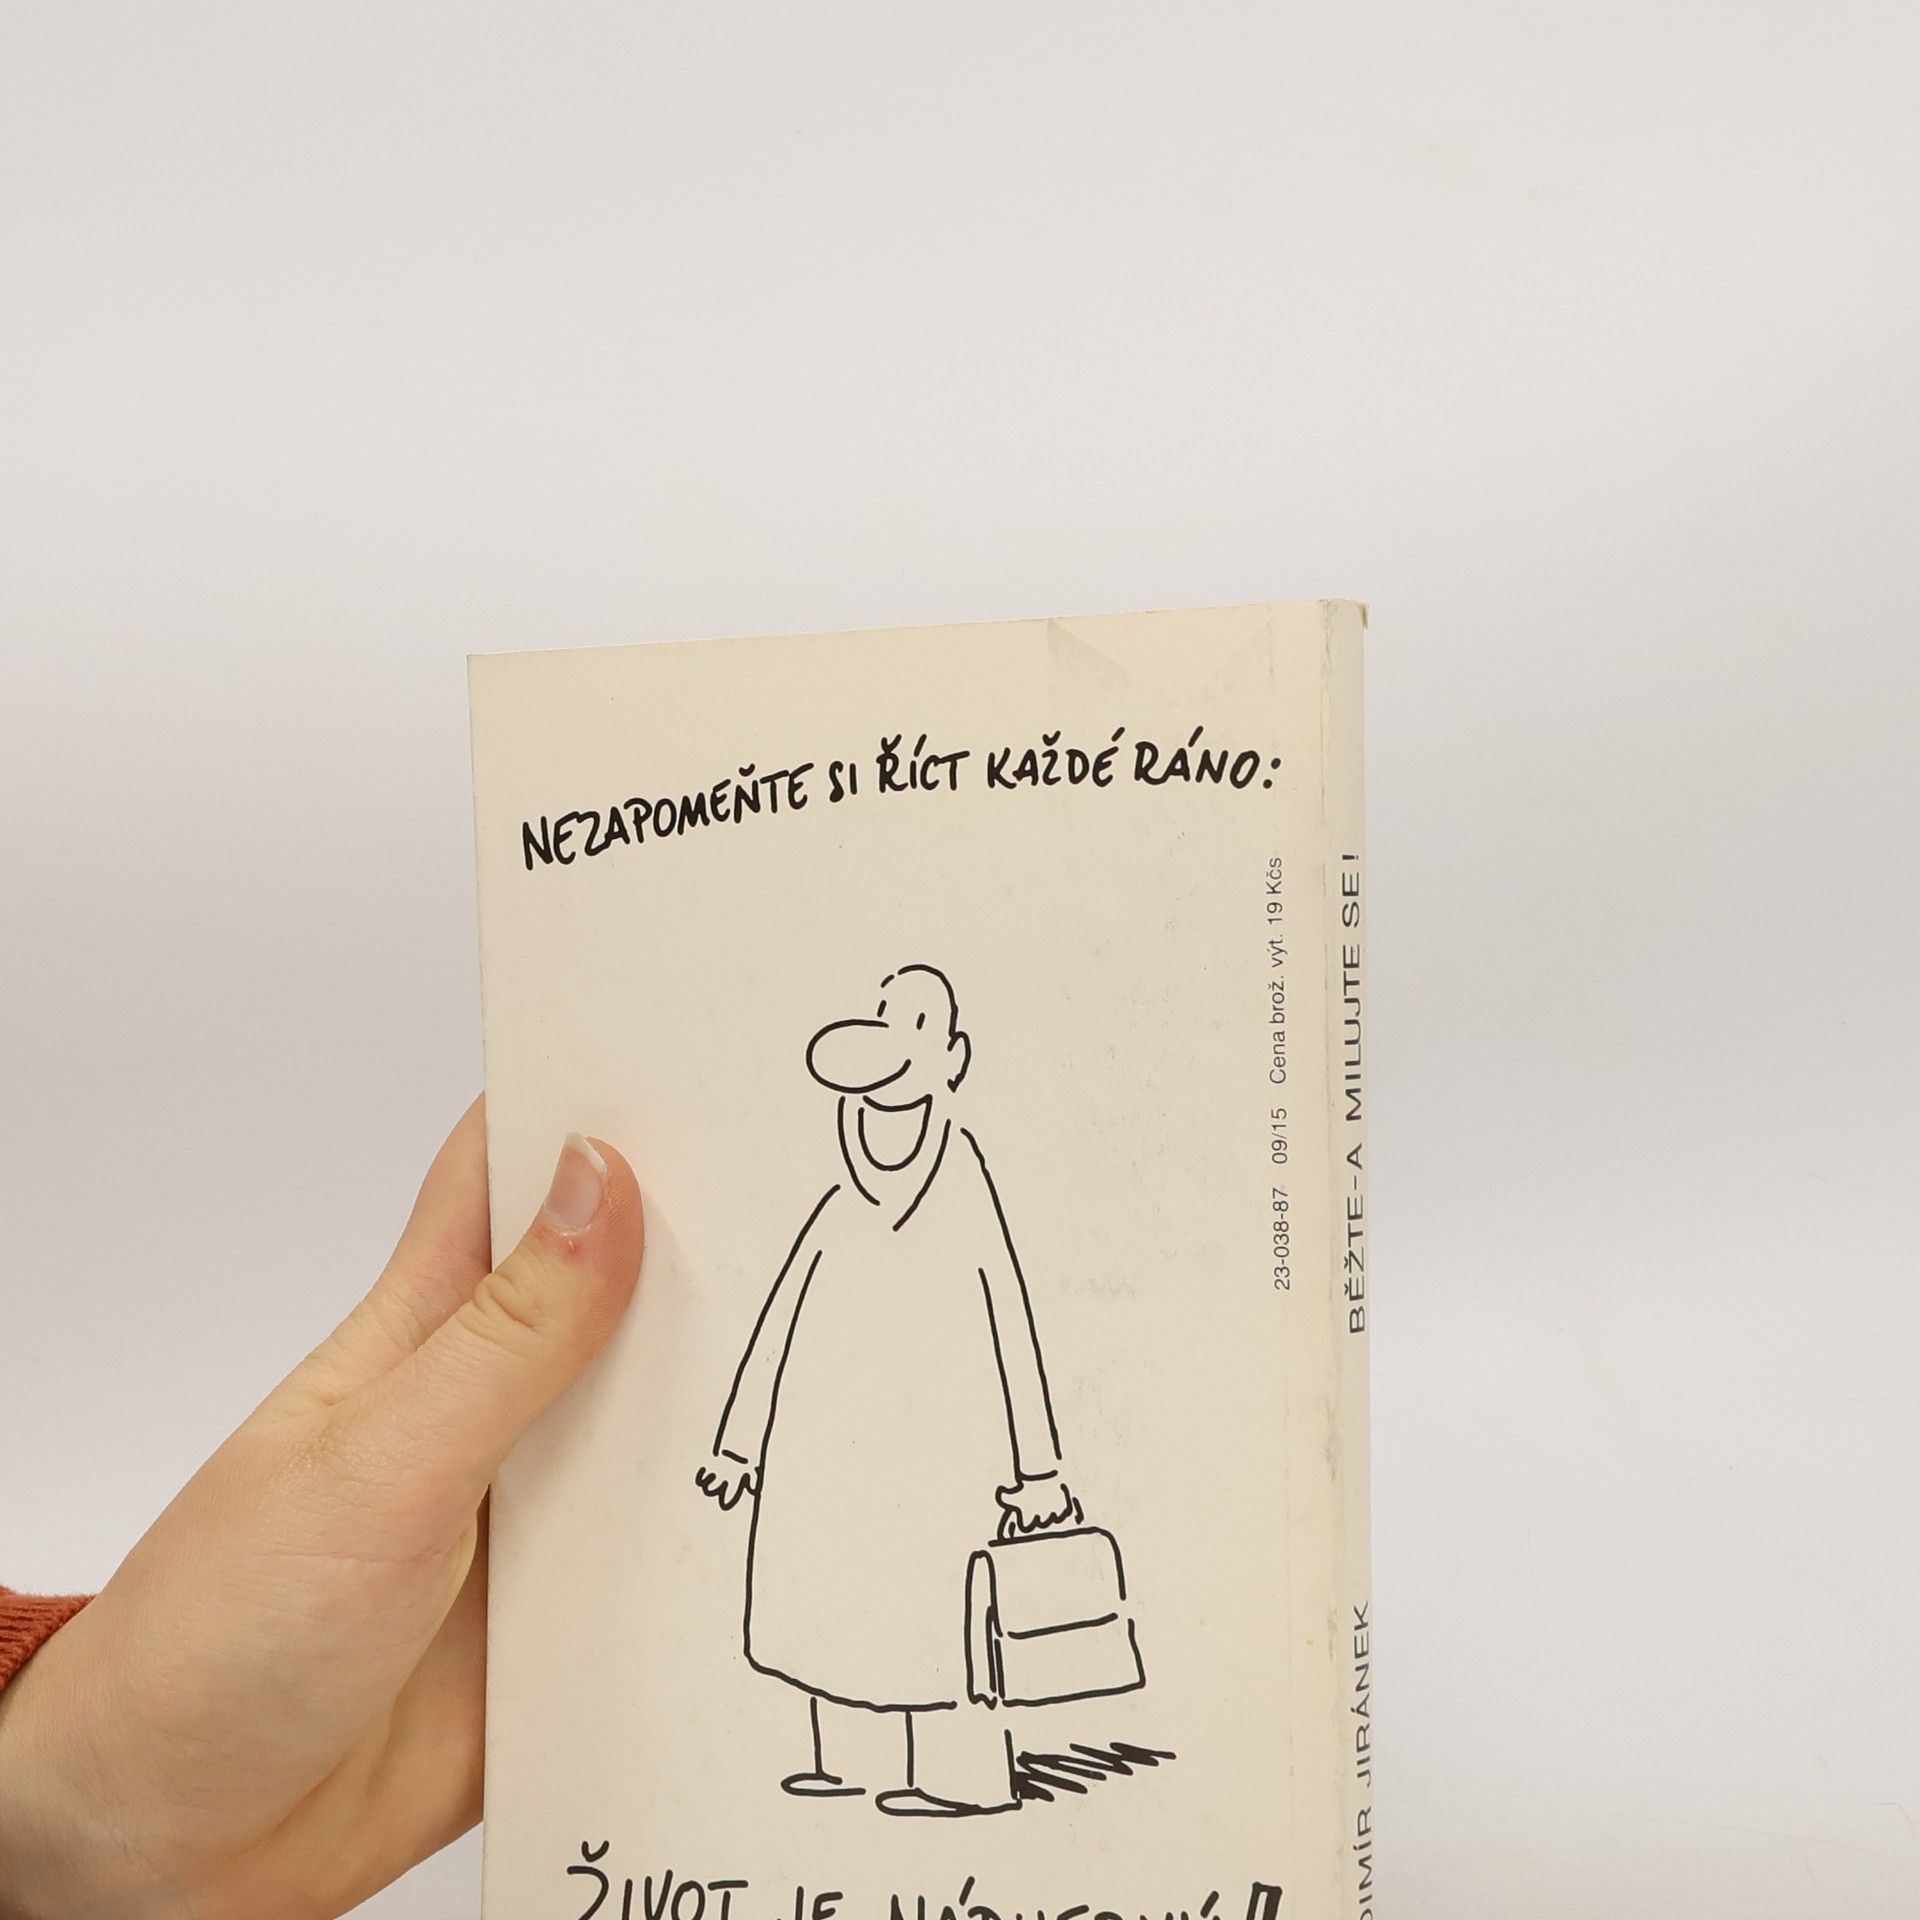 NEZAPOMEŇTE SI ŘÍCT KAŽDÉ RÁNO:
23-038-87 09/15 Cena brož. výt. 19 Kčs
ŽIVOT JE
JIRÁNEK BĚŽTE-A MILUJTE SE!